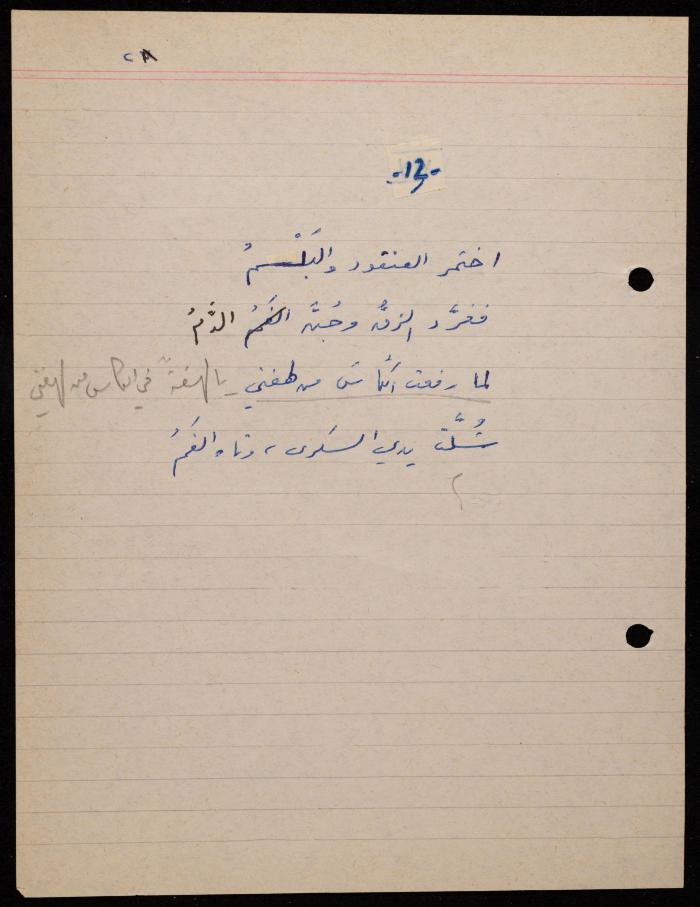 ٢٨
-12-
اختمر العنقود والبَلْسمُ
فغرَّد الزقُّ وجُنَّ الفَمُ الدَّمُ
لما رفعت الكأسَ من لهفتي يا لهفةً في الكأس من لهفتي
شُلَّت يدي السكرى، وتاه الفَمُ